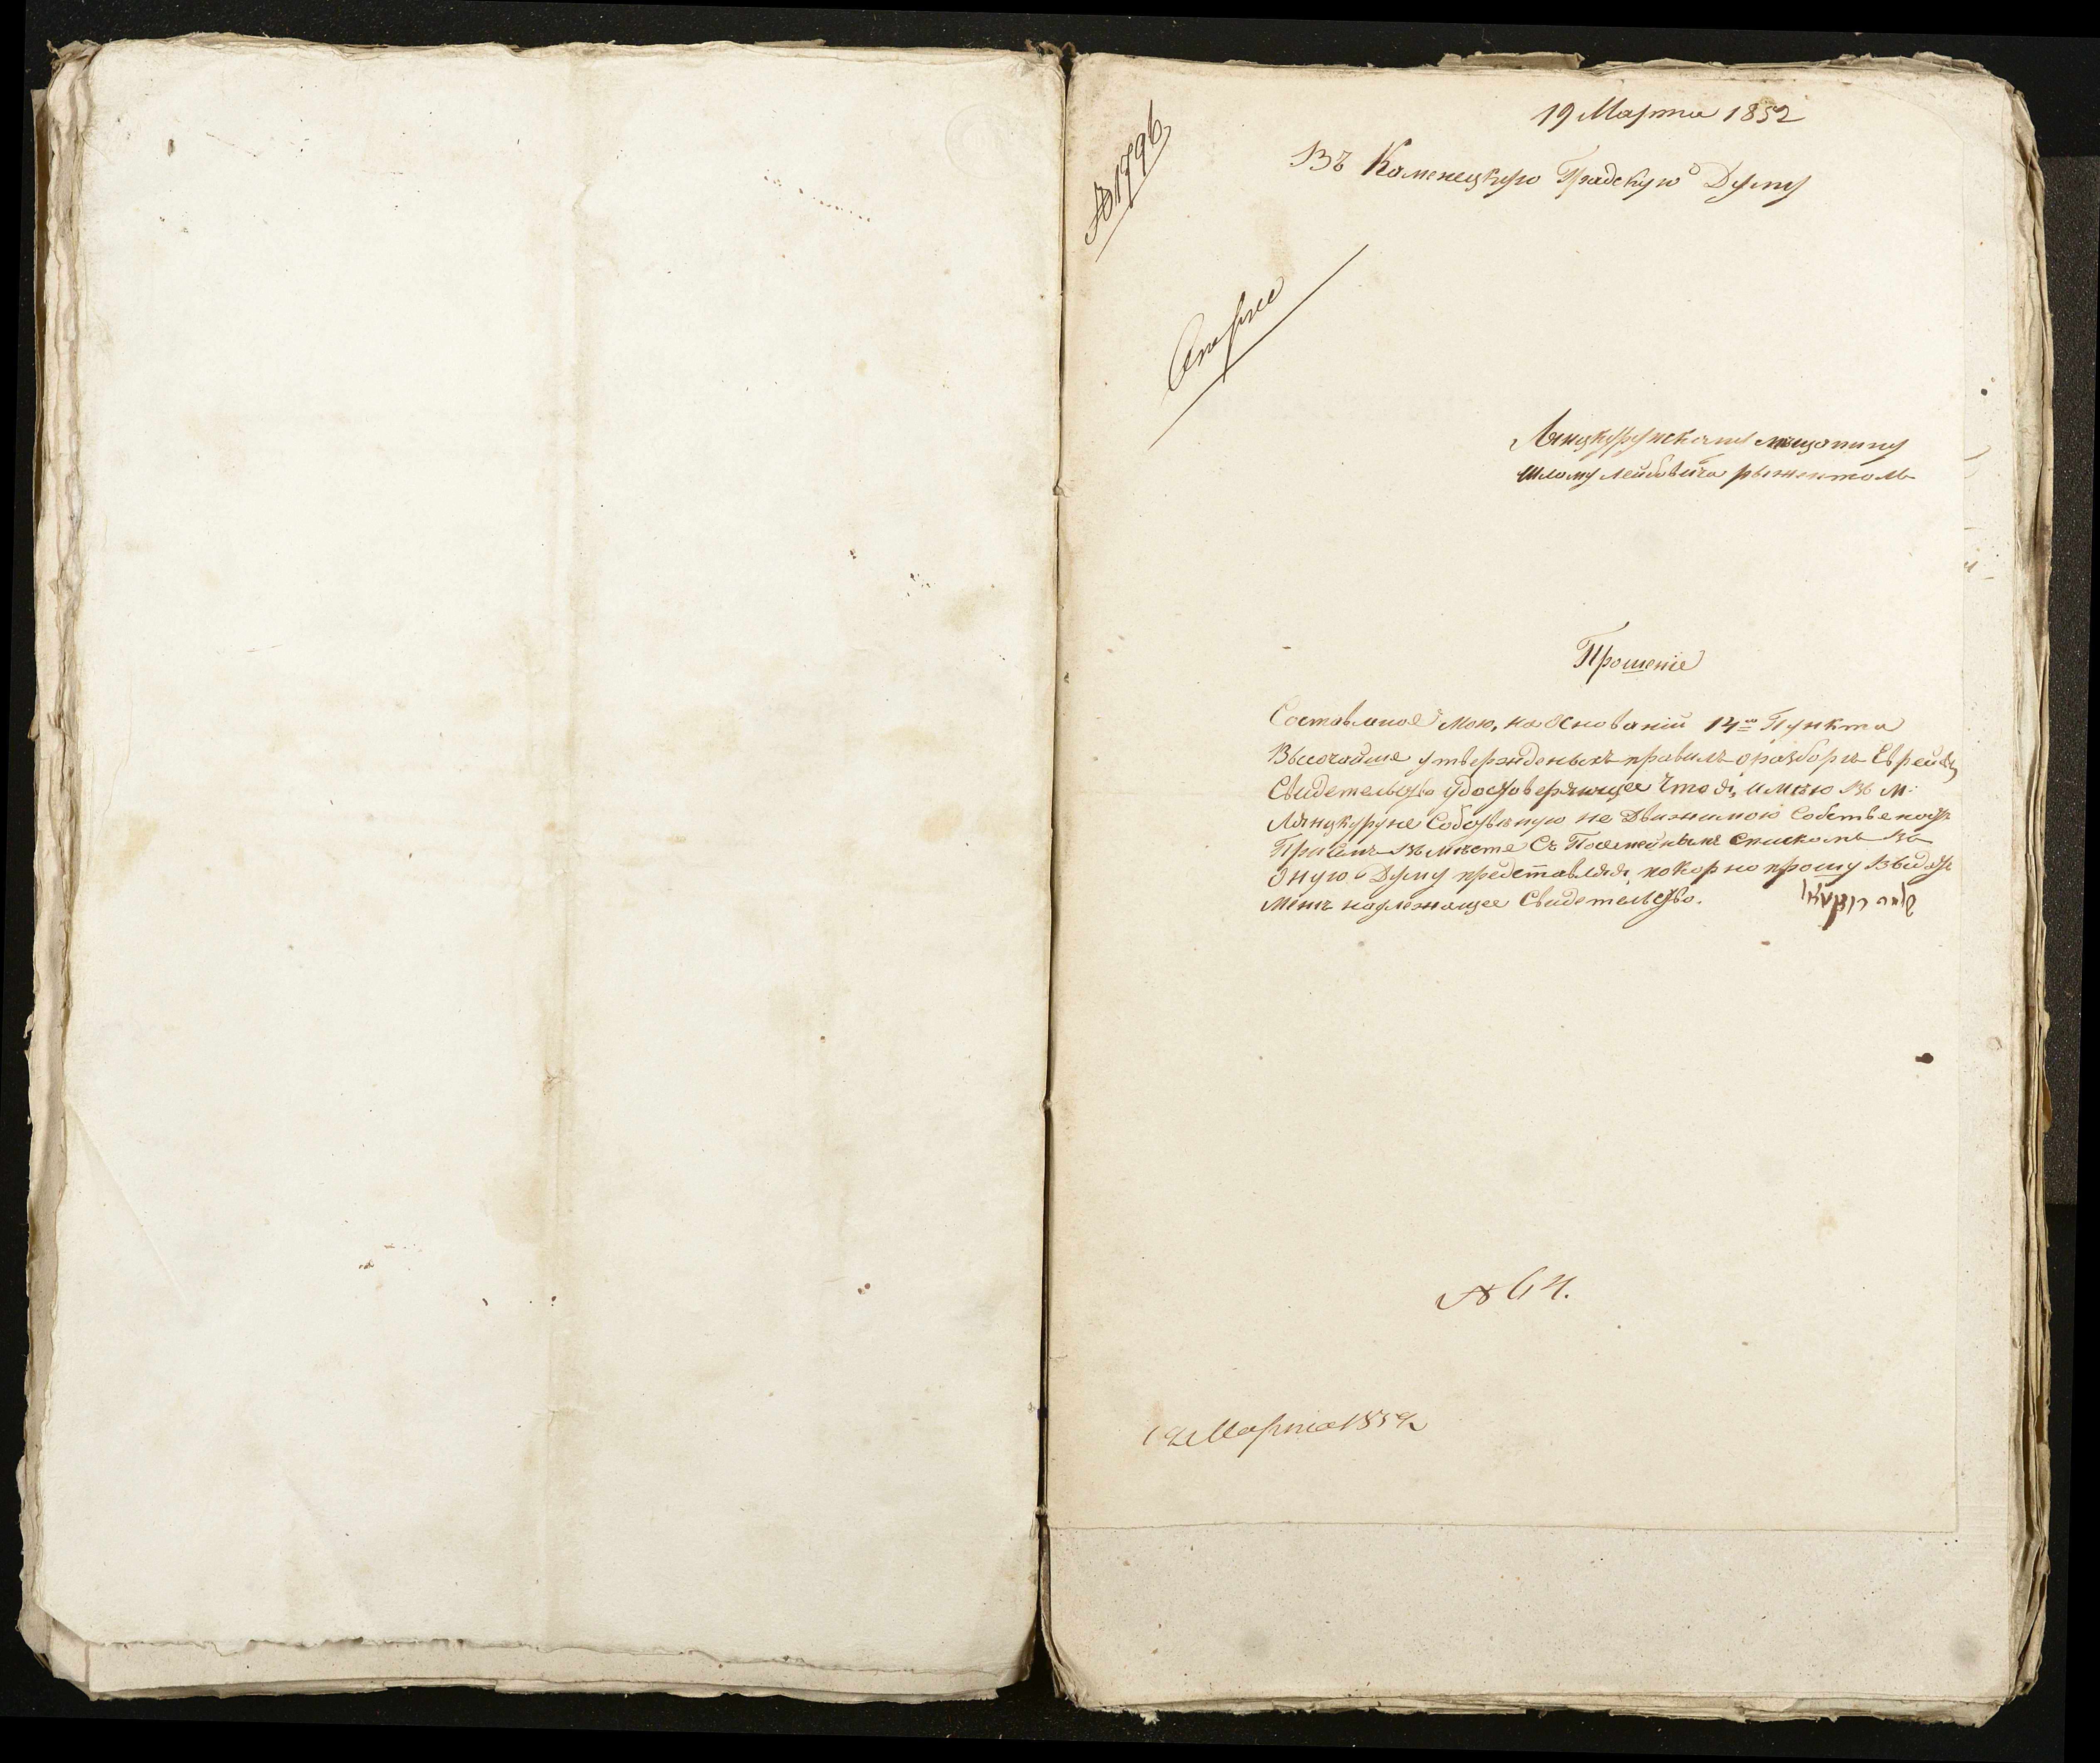 19 Марта 1852
№ 1796
Въ Каменецкую Градскую Думу
Лянцкурунскаго мищонину
Шлому Лейбовича
Прошеніе
Составленое мою, на Основаніи 14го Пункта
Высочайше утвержденыхъ правилъ о разборѣ Еврейевъ
Свидетельство удостоверяющее Что я, имѣю въ м:
Лянцкурунѣ Собственую не Движимою Собственость
При Семъ въмѣсте Съ Посемейнымъ Спискомъ въ
Оную Думу представляя, покорно прошу Выдать
Менѣ надлежащее Свидетельство.
№ 64.
19 Марта 1852